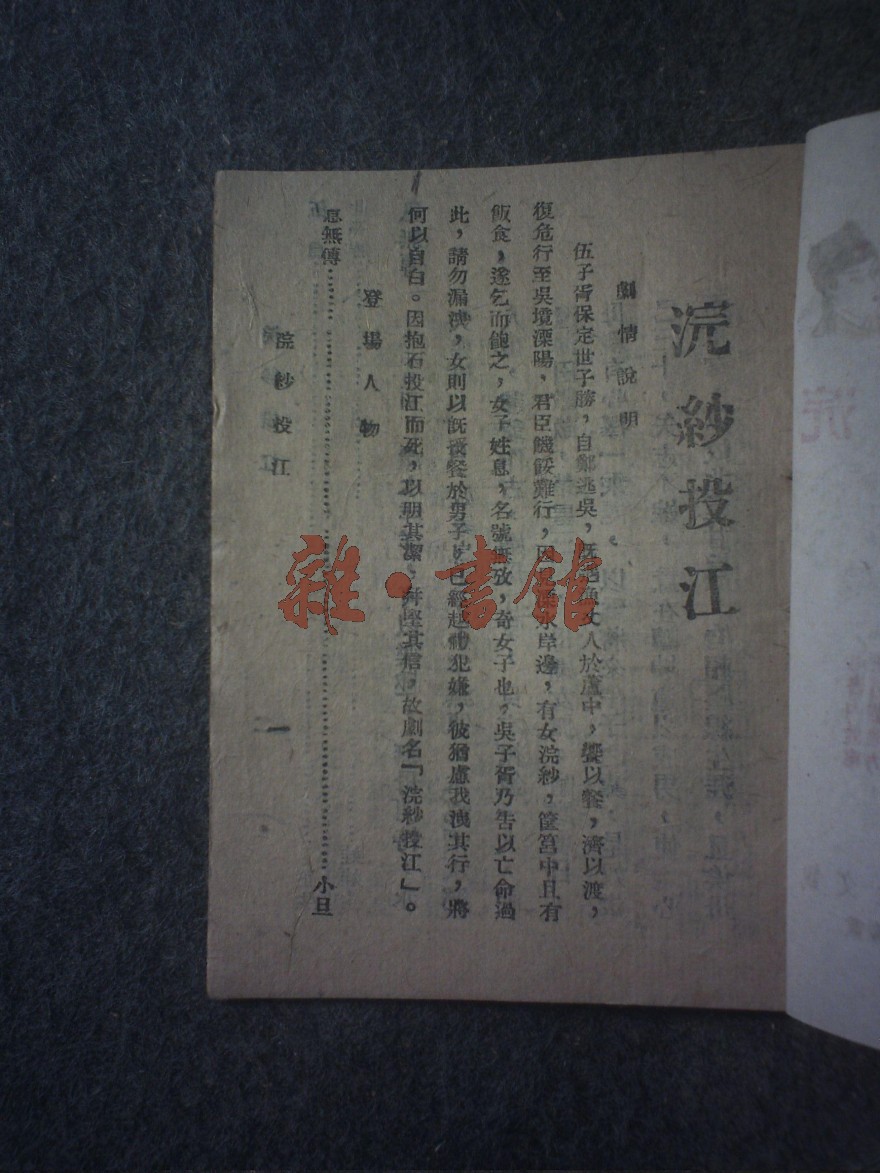 浣紗投江
劇情說明
伍子胥保定世子勝，自鄭逃吳，既遇漁丈人於蘆中，饗以餐，濟以渡，
復危行至吳境溧陽，君臣饑餒難行，因水岸邊，有女浣紗，筐筥中且有
飯食，遂乞而飽之，女子姓息，名號無放，奇女子也，吳子胥乃告以亡命過
此，請勿漏洩，女則以既授餐於男子，已經越禮犯嫌，彼猶慮我洩其行，將
何以自白。因抱石投江而死，以明其潔，堅其信，故劇名「浣紗投江」。
登場人物
息無傅……小旦
浣紗投江
一
雜·書館
浣